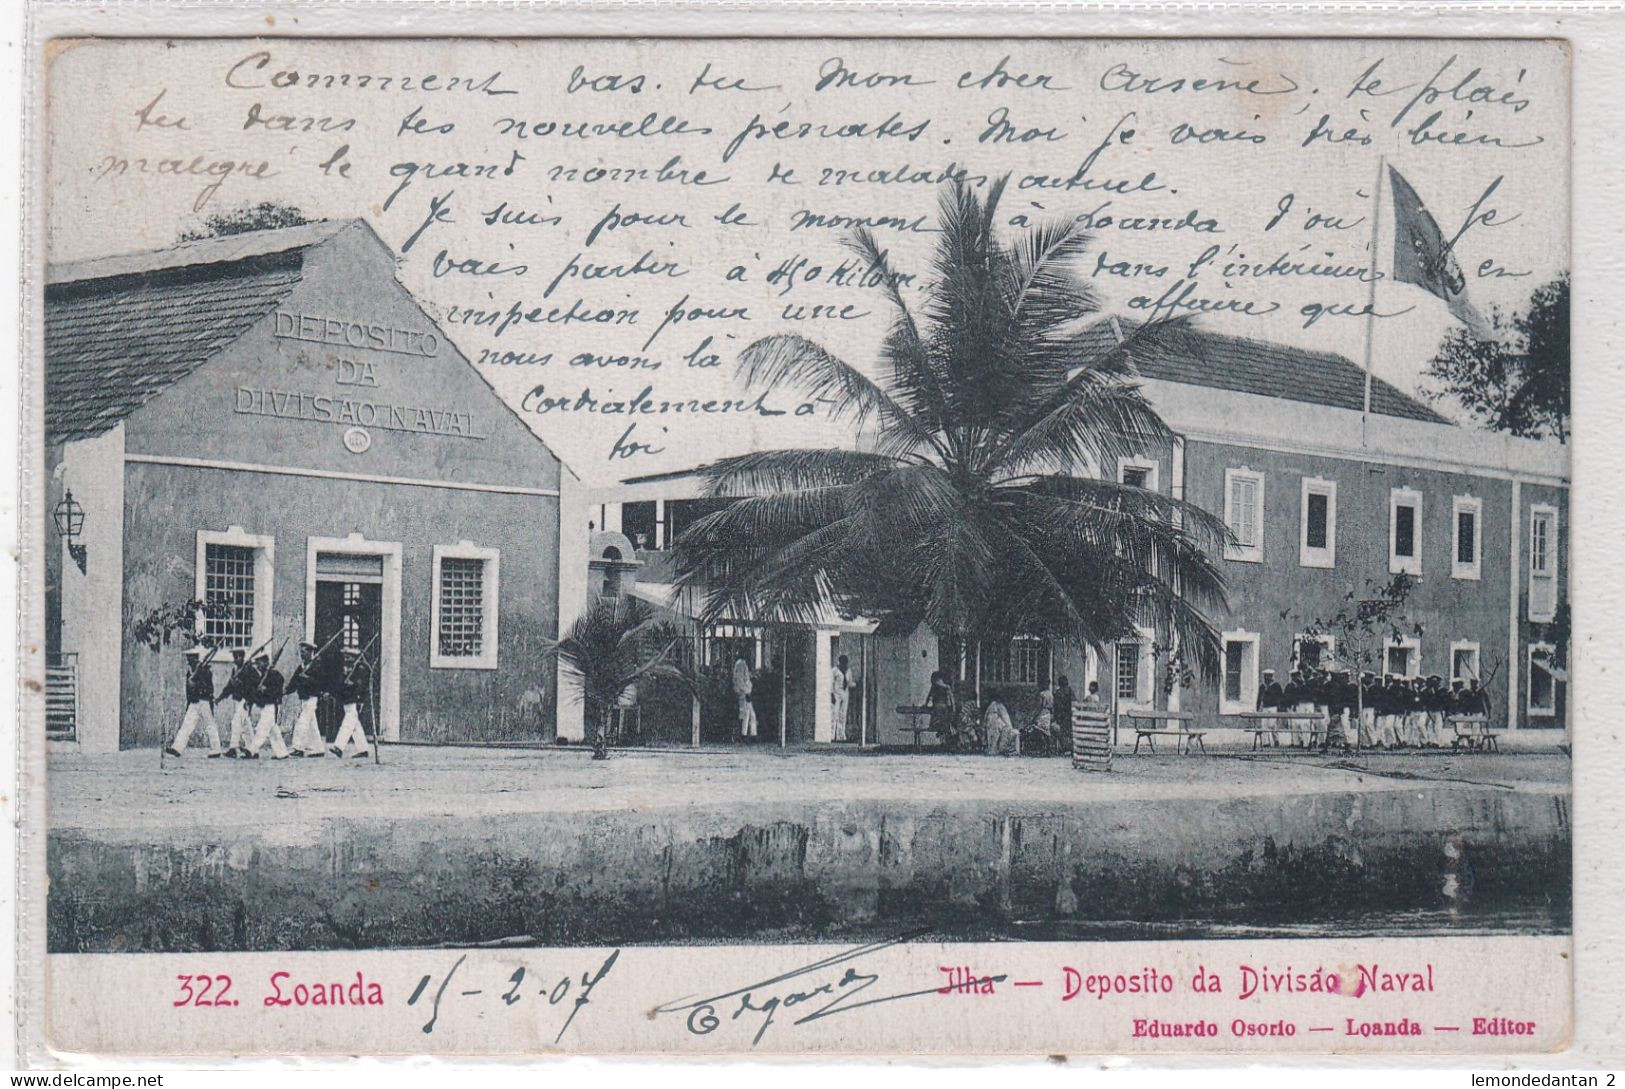 Comment vas. tu, Mon cher Arsène, te plais
tu dans tes nouvelles pénates. Moi je vais très bien
malgré le grand nombre de malades actuel.
Je suis pour le moment à Loanda d'où je
vais partir à 450 Kilom. dans l'intérieur en
inspection pour une affaire que
nous avons là
Cordialement à
toi
DEPOSITO
DA
DIVISÃO NAVAL
322. Loanda 15-2-07 Edgard Ilha — Deposito da Divisão Naval
Eduardo Osorio — Loanda — Editor
lemondedantan 2